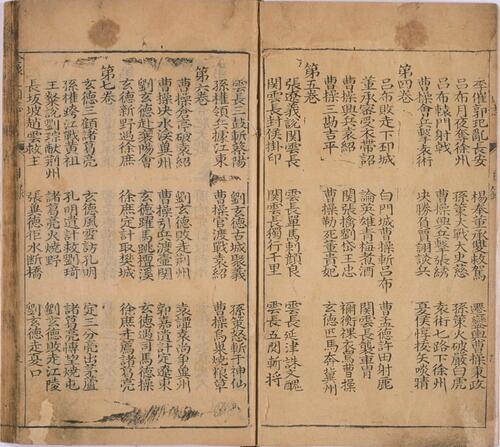 李傕郭汜亂長安 楊奉董承雙救駕 遷鑾輿曹操秉政
呂布月夜奪徐州 孫策大戰太史慈 孫策大破嚴白虎
呂布轅門射戟 曹操興兵擊張綉 袁術七路下徐州
曹操會兵擊袁術 決勝負賈詡談兵 夏侯惇拔矢啖睛
第四卷
呂布敗走下邳城 白門城曹操斬呂布 曹孟德許田射鹿
董承密受衣帶詔 論英雄青梅煮酒 關雲長襲車冑
曹操興兵袁紹 關張擒劉岱王忠 禰衡裸衣罵曹操
曹操三勘吉平 曹操勒死董貴妃 玄德匹馬奔冀州
第五卷
張遼義說關雲長 雲長單馬刺顏良 雲長延津誅文醜
關雲長封侯掛印 關雲長獨行千里 雲長五關斬將
雲長三鼓斬蔡陽 劉玄德古城聚義 孫策怒斬于神仙
孫權領眾據江東 曹操官渡戰袁紹 曹操烏巢燒糧草
第六卷
曹操倉亭破袁紹 劉玄德敗走荊州 袁譚袁尚爭冀州
曹操決水渰冀州 曹操引兵渡壺關 郭嘉遺計定遼東
劉玄德赴襄陽會 玄德躍馬跳檀溪 玄德遇司馬德操
玄德新野遇徐庶 徐庶定計取樊城 徐庶走薦諸葛亮
第七卷
玄德三顧諸葛亮 玄德風雪訪孔明 定三分亮出茅廬
孫權跨江戰黃祖 孔明遺計救劉琦 諸葛亮博望燒屯
王粲說劉琮獻荊州 諸葛亮火燒新野 劉玄德敗走江陵
長坂坡趙雲救主 張翼德拒水斷橋 劉玄德走夏口